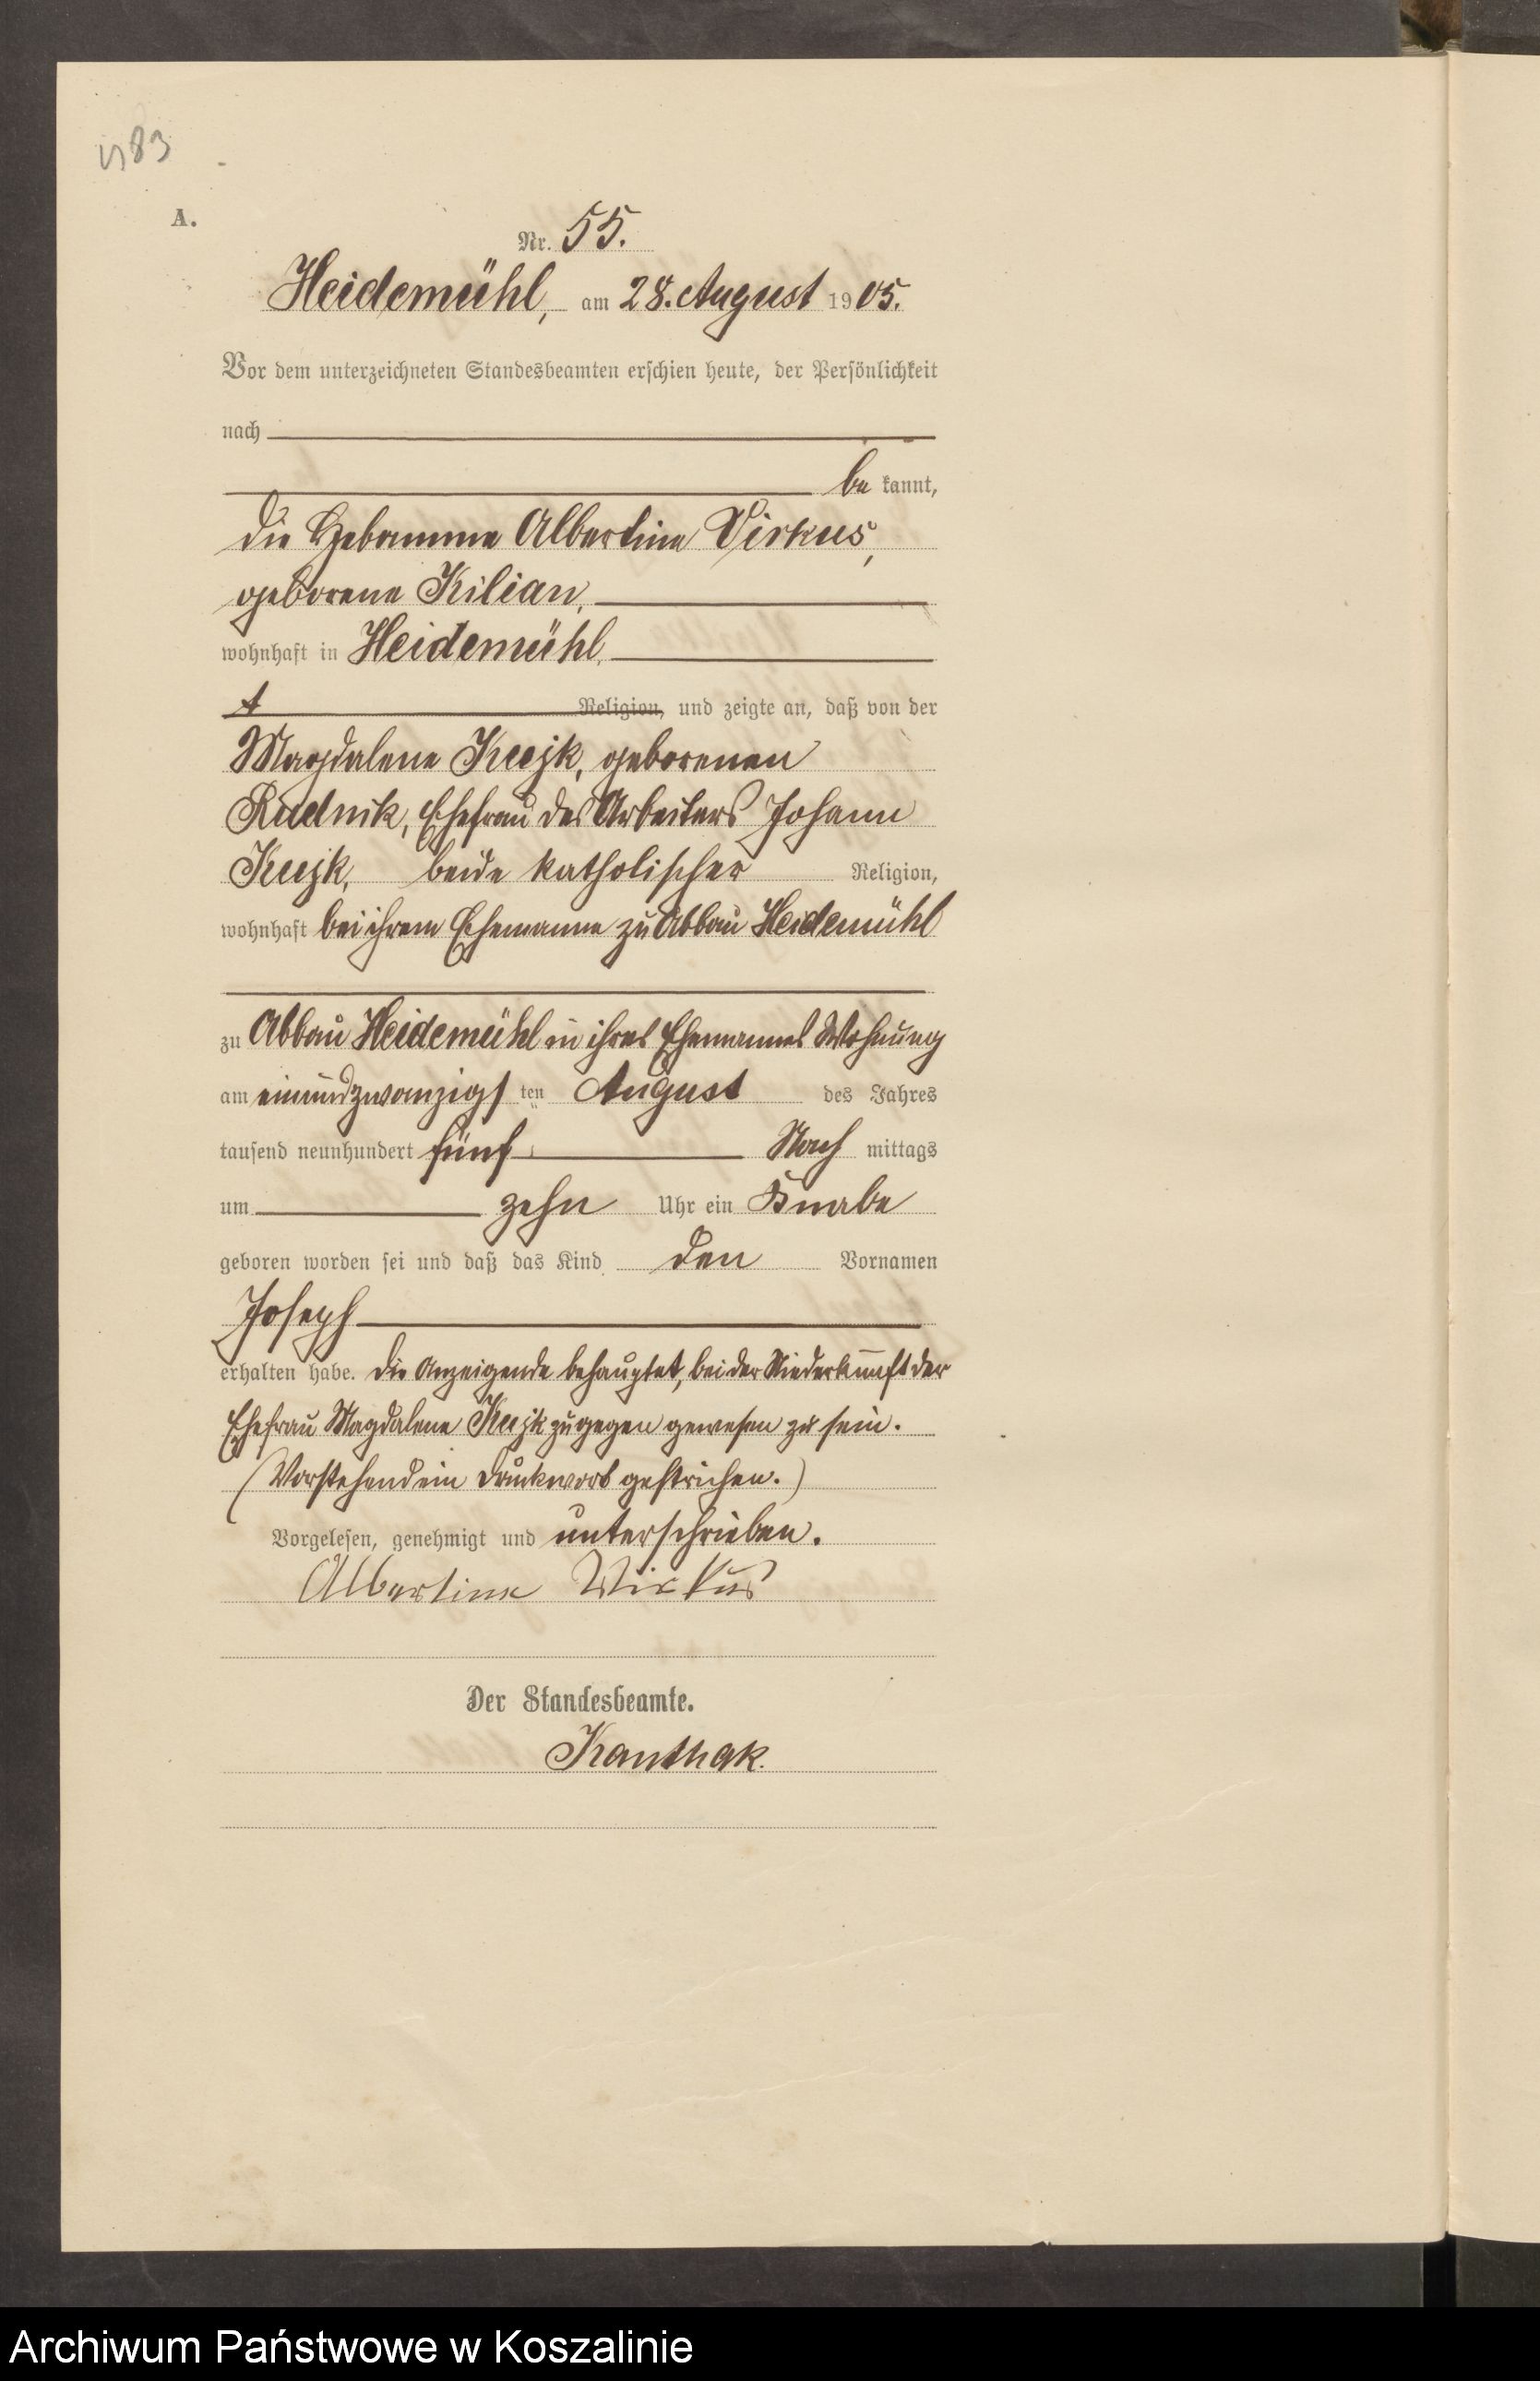 483
A.
Nr. 55.
Heidemühl, am 28. August 1905.
Vor dem unterzeichneten Standesbeamten erschien heute, der Persönlichkeit
nach
be kannt,
die Hebamme Albertine Virkus,
geborene Kilian,
wohnhaft in Heidemühl,
Religion, und zeigte an, daß von der
Magdalene Kujk, geborenen
Rudnik, Ehefrau des Arbeiters Johann
Kujk, beide katholischer Religion,
wohnhaft bei ihrem Ehemanne zu Abbau Heidemühl
zu Abbau Heidemühl in ihres Ehemannes Wohnung
am einundzwanzigsten August des Jahres
tausend neunhundert fünf Nach mittags
um zehn Uhr ein Knabe
geboren worden sei und daß das Kind den Vornamen
Joseph
erhalten habe. Die Anzeigende behauptet, bei der Niederkunft der
Ehefrau Magdalene Kujk zugegen gewesen zu sein.
(Vorstehend ein Druckwort gestrichen.)
Vorgelesen, genehmigt und unterschrieben.
Albertine Wirkus
Der Standesbeamte.
Kanthak.
Archiwum Państwowe w Koszalinie